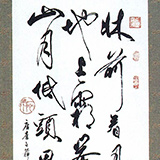 牀前看月
地上霜舉
山月低頭思